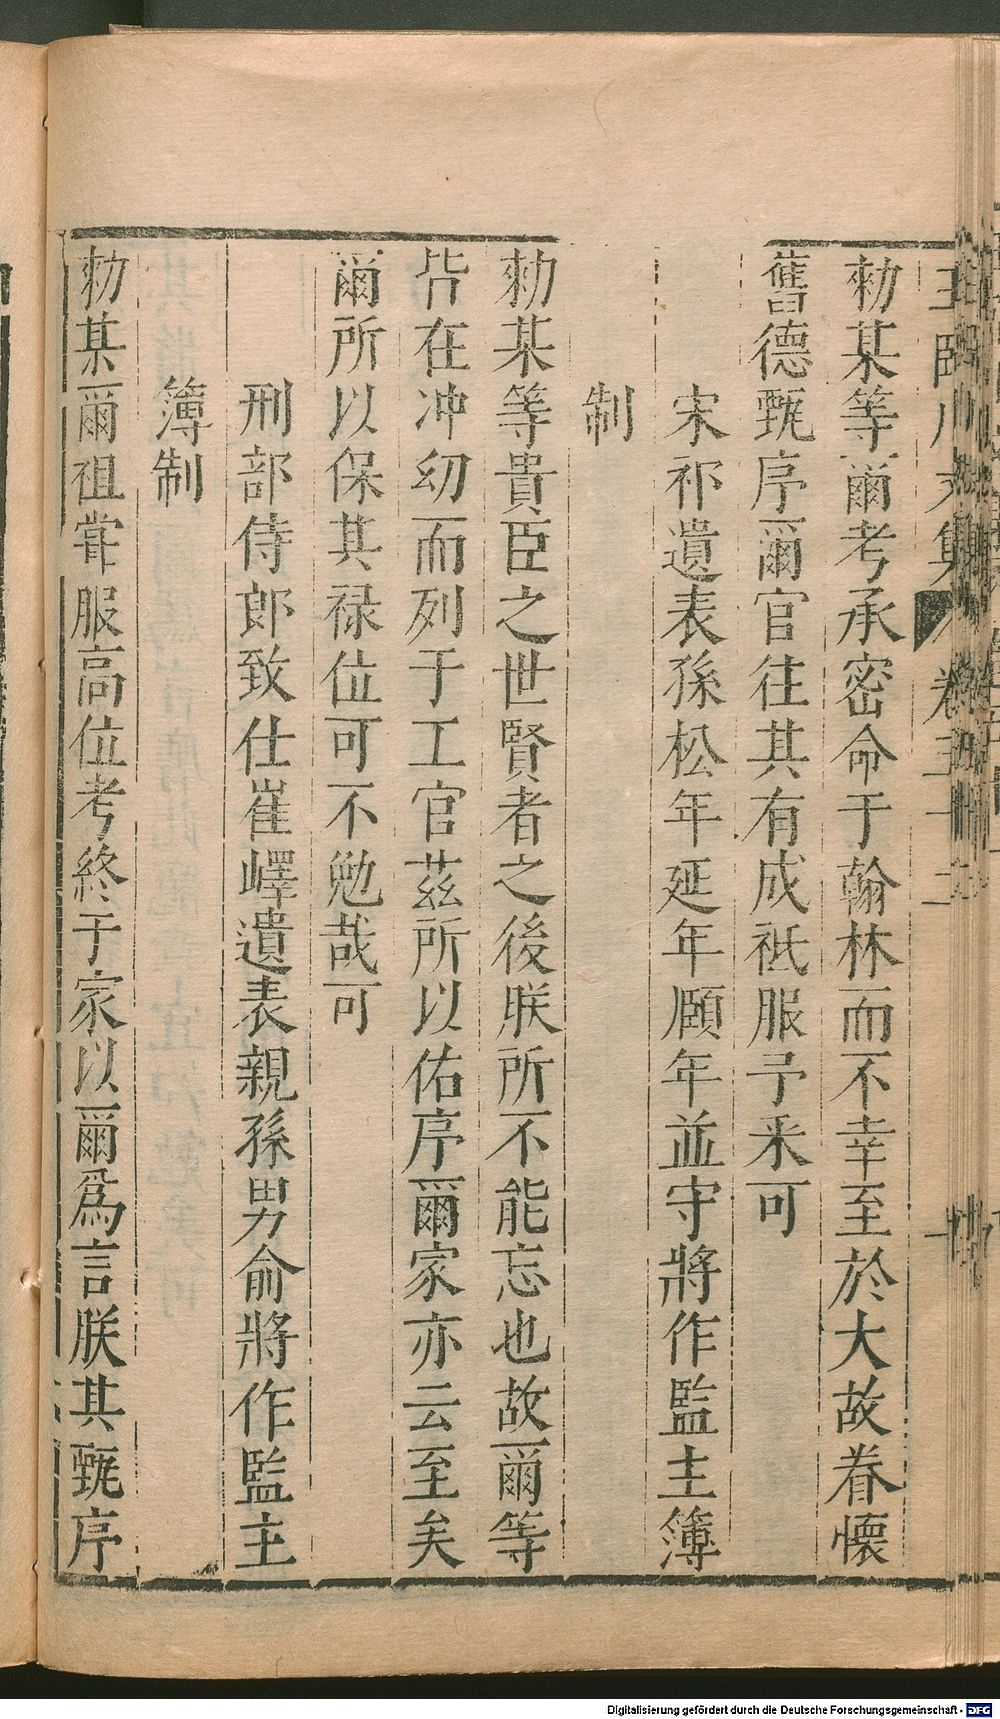 王臨川文集 卷五十二
勑某等爾考承密命于翰林而不幸至於大故眷懷
舊德甄序爾官往其有成祗服予采可
宋祁遺表孫松年延年頤年並守將作監主簿
制
勑某等貴臣之世賢者之後朕所不能忘也故爾等
皆在冲幼而列于工官茲所以佑序爾家亦云至矣
爾所以保其禄位可不勉哉可
刑部侍郎致仕崔嶧遺表親孫男俞將作監主
簿制
勑某爾祖甞服高位考終于家以爾爲言朕其甄序
Digitalisierung gefördert durch die Deutsche Forschungsgemeinschaft - DFG